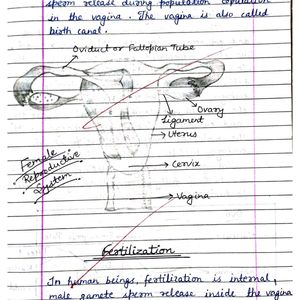 sperm release during population copulation
in the vagina. The vagina is also called
birth canal.
Oviduct or Fallopian Tube
Ovary
Ligament
Uterus
Female
Reproductive
System
Cervix
Vagina
Fertilization
In human beings, fertilization is internal,
male gamete sperm release inside the vagina